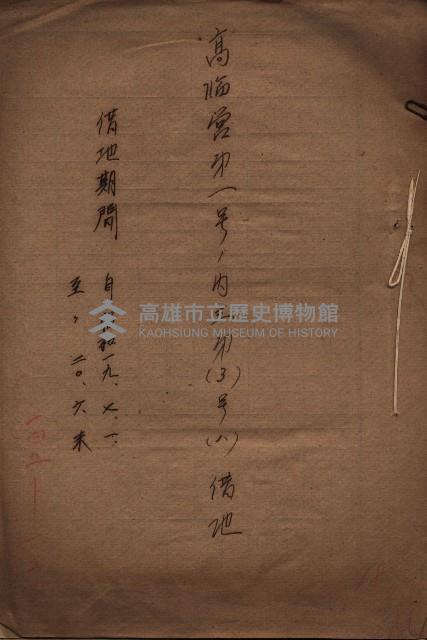 高临营第一号ノ内工第(3)号(八)借地
借地期間
自昭和一九、七、一、
至〃二〇、六末
高雄市立歷史博物館
KAOHSIUNG MUSEUM OF HISTORY